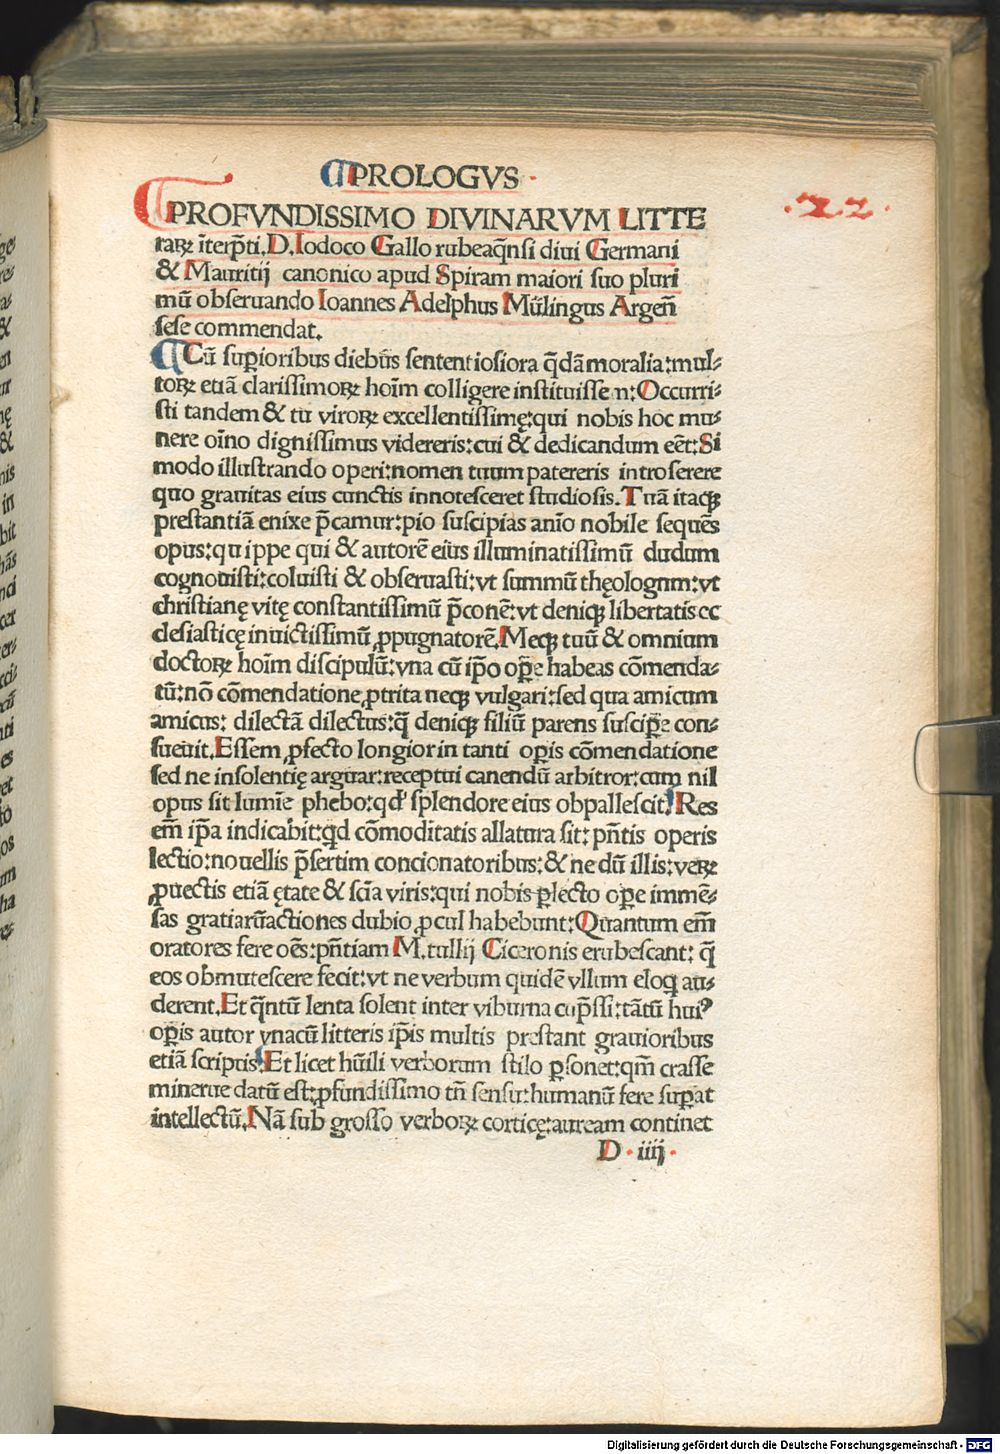 ¶PROLOGVS·
·22·
¶PROFVNDISSIMO DIVINARVM LITTE
raꝝ ĩterp̄ti. D. Iodoco Gallo rubeaq̃nsi diui Germani
& Mauritij canonico apud Spiram maiori suo pluri
mū obseruando Ioannes Adelphus Mūlingus Argeñ
sese commendat.
¶Cū suꝑioribus diebus sententiosiora q̄dā moralia: mul-
toꝝ etiā clarissimoꝝ hoīm colligere instituissem: Occurri-
sti tandem & tu viroꝝ excellentissimę: qui nobis hoc mu-
nere oīno dignissimus videreris: cui & dedicandum eēt: Si
modo illustrando operi: nomen tuum patereris introserere
quo grauitas eius cunctis innotesceret studiosis. Tuā itaqꝫ
prestantiā enixe p̄camur: pio suscipias anīo nobile sequēs
opus: quippe qui & autorē eius illuminatissimū dudum
cognouisti: coluisti & obseruasti: vt summū thęologum: vt
christianę vitę constantissimū p̄conē: vt deniqꝫ libertatis ec
clesiasticę inuictissimū ꝓpugnatorē. Meqꝫ tuū & omnium
doctoꝝ hoīm discipulū: vna cū ip̄o oꝑe habeas cōmenda-
tū: nō cōmendatione ꝓtrita neqꝫ vulgari: sed qua amicum
amicus: dilectā dilectus: q̄ deniqꝫ filiū parens susciꝑe con-
sueuit. Essem ꝓfecto longior in tanti oꝑis cōmendatione
sed ne insolentię arguar: receptui canendū arbitror: cum nil
opus sit lumīe phebo: qd' splendore eius obpallescit! Res
em̄ ip̄a indicabit: qd̄ cōmoditatis allatura sit: pn̄tis operis
lectio: nouellis p̄sertim concionatoribus: & ne dū illis: veꝝ
ꝓuectis etiā ętate & scīa viris: qui nobis ꝑlecto oꝑe immē-
sas gratiarūactiones dubio ꝓcul habebunt: Quantum em̄
oratores fere oēs: pn̄tiam M. tullij Ciceronis erubescant: q̄
eos obmutescere fecit: vt ne verbum quidē vllum eloq̄ au-
derent. Et q̄ntū lenta solent inter viburna cup̄ssi: tātū huiꝰ
oꝑis autor vnacū litteris ip̄is multis prestant grauioribus
etiā scriptis! Et licet hūili verborum stilo ꝑsonet: qm̄ crasse
minerue datū est: ꝓfundissimo tn̄ sensu: humanū fere suꝑat
intellectū. Nā sub grosso verboꝝ corticę: auream continet
D·iiij·
Digitalisierung gefördert durch die Deutsche Forschungsgemeinschaft - DFG